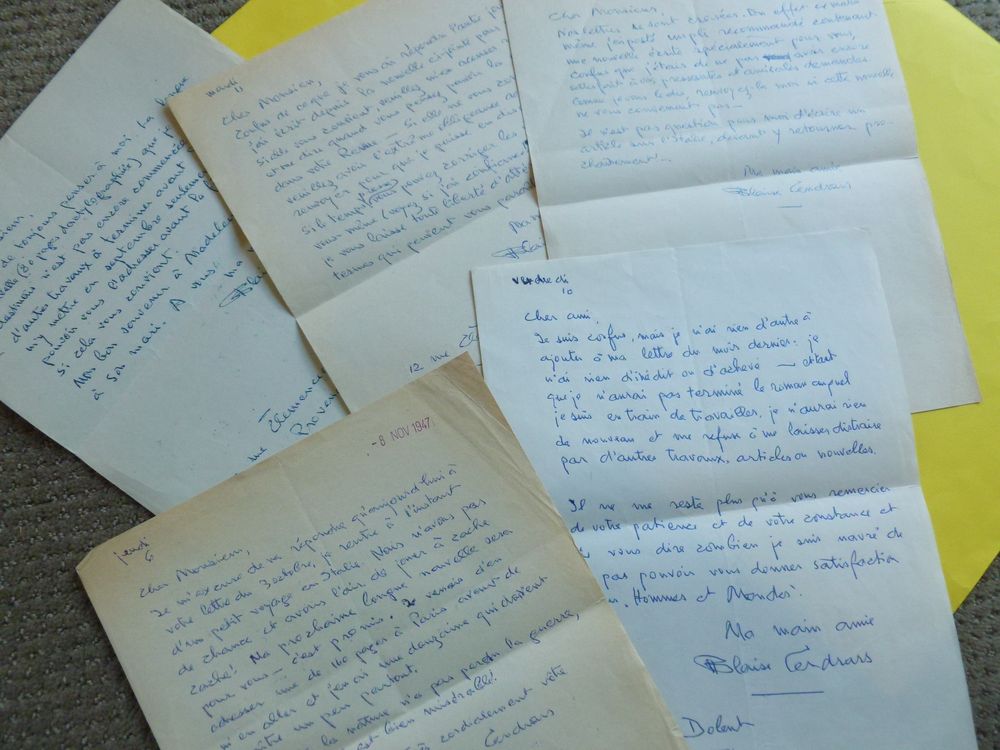 toujours penser à moi. La
(80 pages dactylographiées) que je
destinais n'est pas encore commencée
d'autres travaux à terminer avant de
m'y mettre en septembre seulement
pouvoir vous l'adresser avant la
si cela vous convient
Mon bon souvenir à Madeleine
à son mari. A vous.
ma
Blaise
rue Clémence
mardi
11
Cher Monsieur,
Confus de ce que je vous ai répondu
j'ai écrit depuis la nouvelle ci-jointe pour
Si elle vous convient, veuillez m'en accuser
et me dire quand vous pensez pouvoir la
dans votre Revue — Si elle ne vous
veuillez avoir l'extrême obligeance de
renvoyer pour que je puisse en dis
Si le temps presse, pouvez corriger les
vous même (voyez si j'ai confiance!)
je vous laisse toute liberté d'att
termes qui peuvent vous paraître
Blaise
12 rue
Cher Monsieur,
Nos lettres se sont croisées. En effet ce matin
même j'ai posté un pli recommandé contenant
une nouvelle écrite spécialement pour vous,
confus que j'étais de ne pas avoir encore
satisfait à vos pressantes et amicales demandes
Comme je vous le dis, renvoyez-la moi si cette nouvelle
ne vous convenait pas —
Il n'est pas question pour moi d'écrire un
article sur l'Italie, devant y retourner pro-
chainement —
Ma main amie
Blaise Cendrars
vendredi
10
Cher ami,
Je suis confus, mais je n'ai rien d'autre à
ajouter à ma lettre du mois dernier: je
n'ai rien d'inédit ou d'achevé — et tant
que je n'aurai pas terminé le roman auquel
je suis en train de travailler, je n'aurai rien
de nouveau et me refuse à me laisser distraire
par d'autres travaux, articles ou nouvelles.
Il ne me reste plus qu'à vous remercier
de votre patience et de votre constance et
à vous dire combien je suis navré de
pas pouvoir vous donner satisfaction
Hommes et Mondes".
Ma main amie
Blaise Cendrars
Dolent
- 8 NOV 1947
jeudi
6
Cher Monsieur,
Je m'excuse de ne répondre qu'aujourd'hui à
votre lettre du 3 octobre, je rentre à l'instant
d'un petit voyage en Italie. Nous n'avons pas
de chance et avons l'air de jouer à cache
cache! Ma prochaine longue nouvelle sera
pour vous — c'est promis. Je venais d'en
adresser une de 110 pages à Paris avant de
m'en aller et j'en ai une douzaine qui doivent
être un peu partout.
la nature n'a pas perdu la guerre,
est bien misérable!
cordialement vôtre
Cendrars